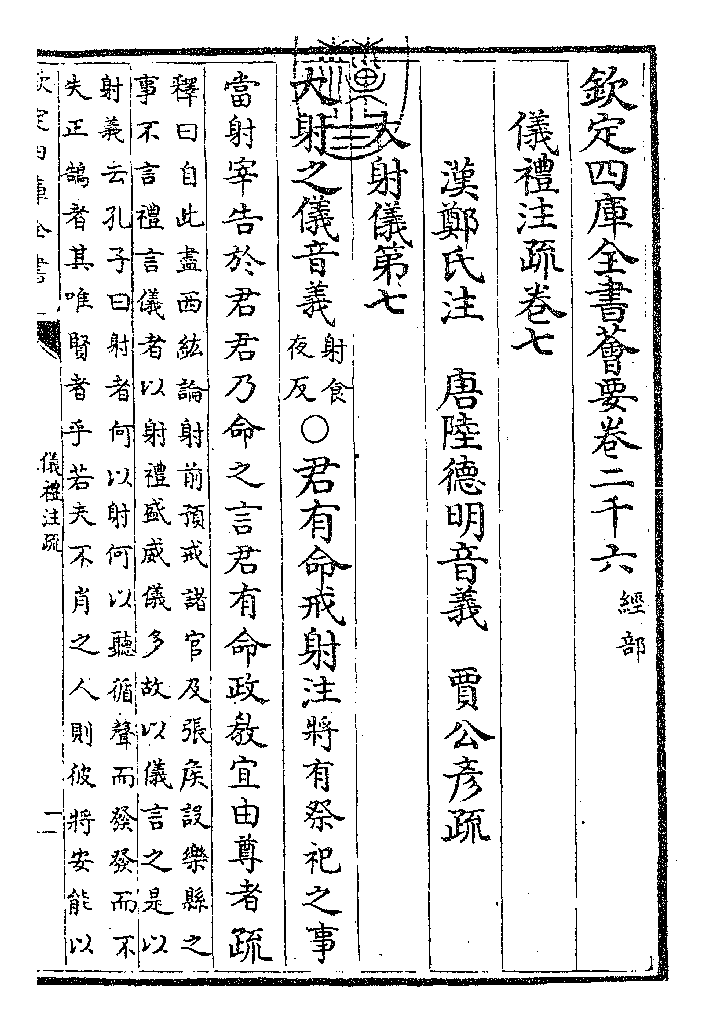 欽定四庫全書薈要卷二千六 經部
儀禮注疏卷七
漢鄭氏注 唐陸德明音義 賈公彦疏
大射儀第七
大射之儀音義射食夜反○君有命戒射注將有祭祀之事
當射宰告於君君乃命之言君有命政敎宜由尊者疏
釋曰自此盡西紘論射前預戒諸官及張侯設樂縣之
事不言禮言儀者以射禮盛威儀多故以儀言之是以
射義云孔子曰射者何以射何以聽循聲而發發而不
失正鵠者其唯賢者乎若夫不肖之人則彼將安能以
欽定四庫全書
儀禮注疏
一